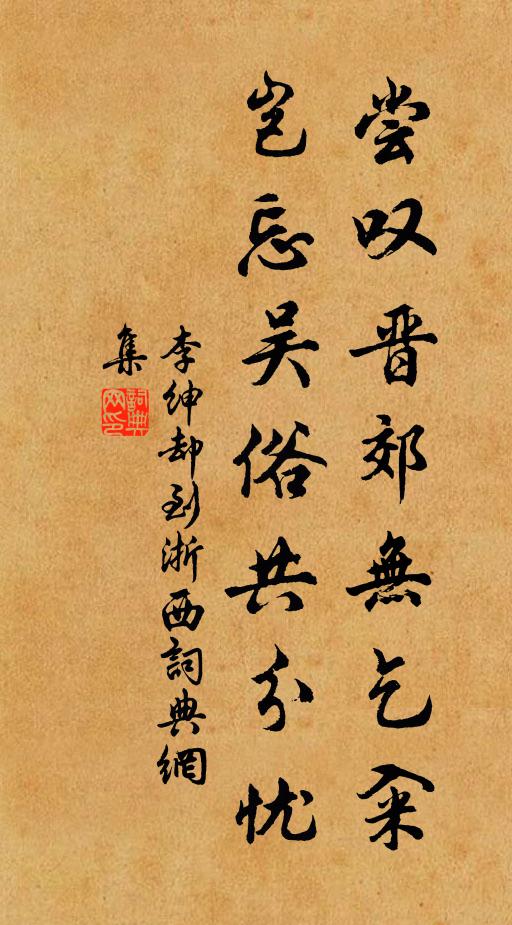 尝叹晋郊無乞籴
岂忘吴俗共分忧
李绅却到浙西詞典網
集
詞典
网印